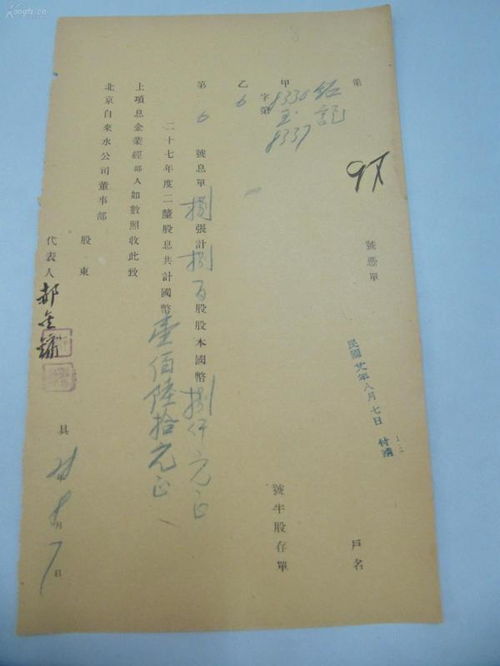 第 銘記 戶名
甲 8330至8337
字第 號憑單 號半股存單
乙 6
97
民國廿八年八月七日 付清
第 6 號息單 捌 張計 捌百 股股本國幣 捌仟元正
二十七年度二釐股息共計國幣 壹佰陸拾元正
上項息金業經鄙人如數照收此致
北京自來水公司董事部
股東
代表人 郝金鏞 具 月 7 日
kongfz.cn